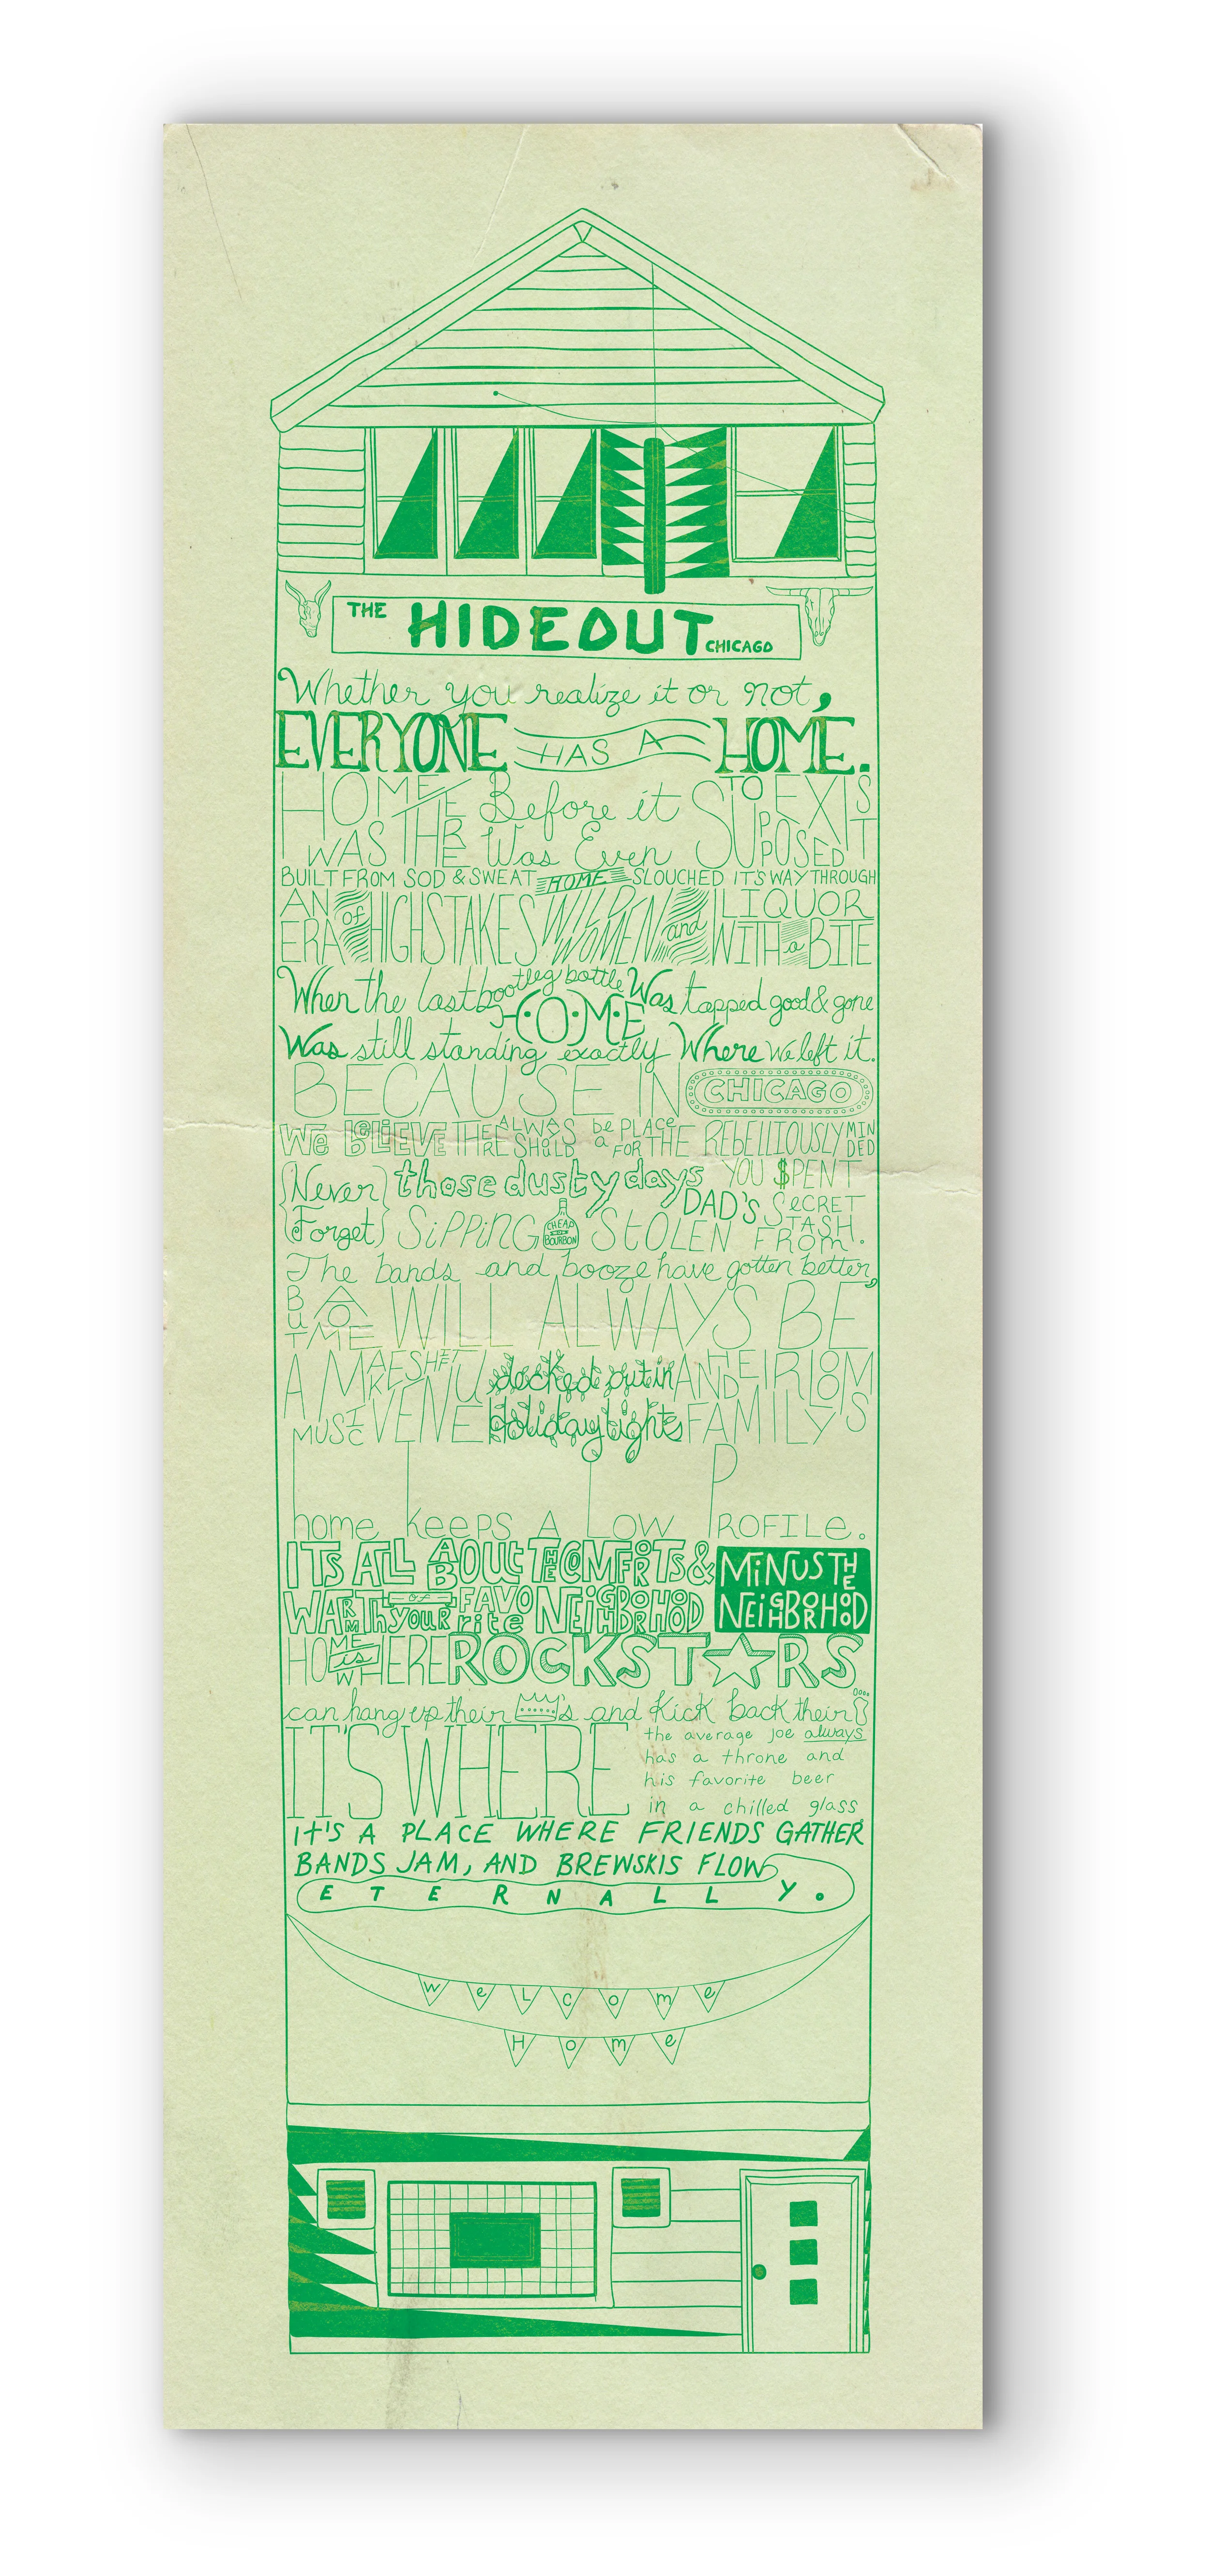 THE HIDEOUT CHICAGO
Whether you realize it or not,
EVERYONE HAS A HOME.
HOME WAS THERE Before it Was Even SUPPOSED TO EXIST
BUILT FROM SOD & SWEAT HOME SLOUCHED IT'S WAY THROUGH
AN ERA of HIGH STAKES WILD WOMEN and LIQUOR WITH a BITE
When the last bootleg bottle Was tapped good & gone
HOME
Was still standing exactly Where we left it.
BECAUSE IN CHICAGO
WE BELIEVE THERE ALWAYS SHOULD be a PLACE FOR THE REBELLIOUSLY MINDED
Never Forget those dusty days YOU $PENT
SiPPiNG CHEAP BOURBON STOLEN FROM DAD'S SeCRET STASH.
The bands and booze have gotten better,
BUT HOME WILL ALWAYS BE
A MAKESHIFT MUSIC VENUE decked out in Holiday lights AND FAMILY HEIRLOOMS
home keePS A LOW PROFILe.
ITS ALL ABOUt THE COMFORTS &
WARMTh of yOUR FAVOrite NEiGHBORHOOD MiNUS THE NEiGHBORHOOD
HOME is WHERE ROCKSTRS
can hang up their 's and Kick back their
IT'S WHERE the average joe always
has a throne and
his favorite beer
in a chilled glass.
It'S A PLACE WHERE FRIENDS GATHER
BANDS JAM, AND BREWSKIS FLOW
ETERNALLY.
WeLCome
Home